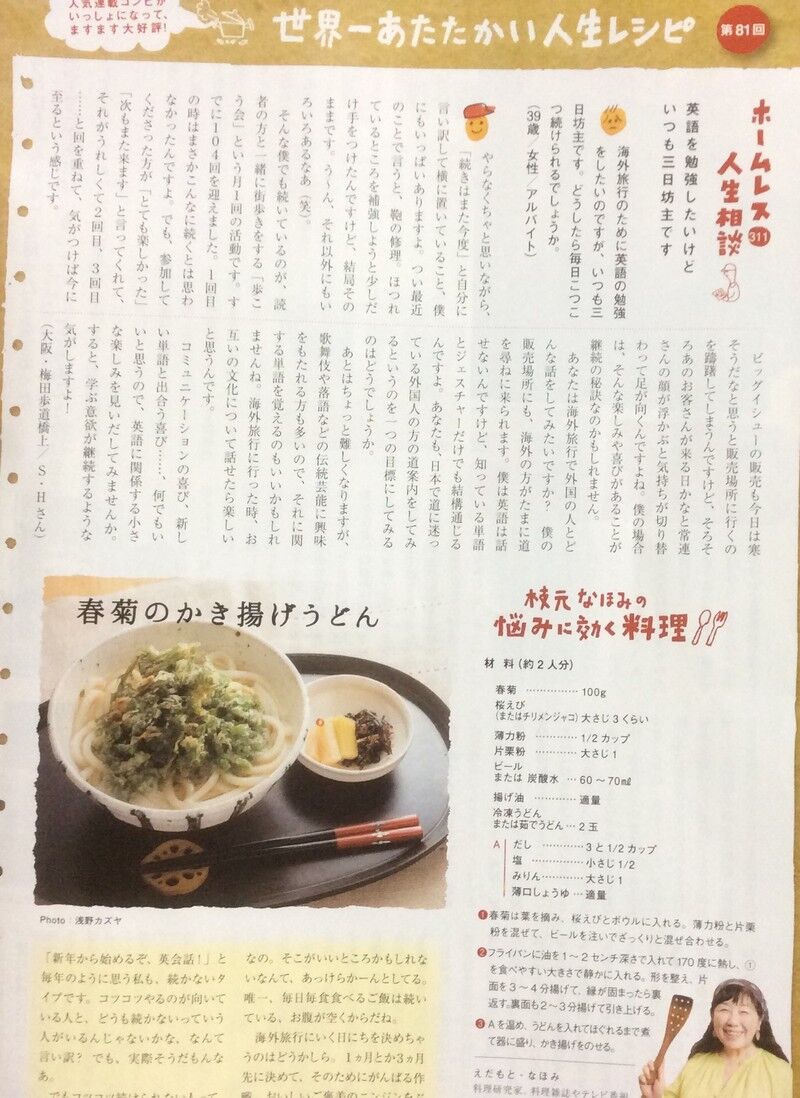 人気連載コンビが
いっしょになって、
ますます大好評!
世界一あたたかい人生レシピ
第81回
ホームレス
人生相談
311
英語を勉強したいけど
いつも三日坊主です
海外旅行のために英語の勉強
をしたいのですが、いつも三
日坊主です。どうしたら毎日こつこ
つ続けられるでしょうか。
(39歳/女性/アルバイト)
やらなくちゃと思いながら、
「続きはまた今度」と自分に
言い訳して横に置いていること、僕
にもいっぱいありますよ。つい最近
のことで言うと、鞄の修理。ほつれ
ているところを補強しようと少しだ
け手をつけたんですけど、結局その
ままです。う〜ん、それ以外にもい
ろいろあるなあ(笑)。
そんな僕でも続いているのが、読
者の方と一緒に街歩きをする「歩こ
う会」という月1回の活動です。す
でに104回を迎えました。1回目
の時はまさかこんなに続くとは思わ
なかったんですよ。でも、参加して
くださった方が「とても楽しかった」
「次もまた来ます」と言ってくれて、
それがうれしくて2回目、3回目
……と回を重ねて、気がつけば今に
至るという感じです。
ビッグイシューの販売も今日は寒
そうだなと思うと販売場所に行くの
を躊躇してしまうんですけど、そろそ
ろあのお客さんが来る日かなと常連
さんの顔が浮かぶと気持ちが切り替
わって足が向くんですよね。僕の場合
は、そんな楽しみや喜びがあることが
継続の秘訣なのかもしれません。
あなたは海外旅行で外国の人とど
んな話をしてみたいですか? 僕の
販売場所にも、海外の方がたまに道
を尋ねに来られます。僕は英語は話
せないんですけど、知っている単語
とジェスチャーだけでも結構通じる
んですよ。あなたも、日本で道に迷っ
ている外国人の方の道案内をしてみ
るというのを一つの目標にしてみる
のはどうでしょうか。
あとはちょっと難しくなりますが、
歌舞伎や落語などの伝統芸能に興味
をもたれる方も多いので、それに関
する単語を覚えるのもいいかもしれ
ませんね。海外旅行に行った時、お
互いの文化について話せたら楽しい
と思うんです。
コミュニケーションの喜び、新し
い単語と出合う喜び……、何でもい
いと思うので、英語に関係する小さ
な楽しみを見いだしてみませんか。
すると、学ぶ意欲が継続するような
気がしますよ!
(大阪・梅田歩道橋上/S・Hさん)
春菊のかき揚げうどん
Photo:浅野カズヤ
枝元なほみの
悩みに効く料理
材 料(約2人分)
春菊 …………… 100g
桜えび
(またはチリメンジャコ) 大さじ3くらい
薄力粉 ………… 1/2カップ
片栗粉 ………… 大さじ1
ビール
または 炭酸水 … 60〜70㎖
揚げ油 ………… 適量
冷凍うどん
または茹でうどん… 2玉
A
だし ………… 3と1/2カップ
塩 …………… 小さじ1/2
みりん……… 大さじ1
薄口しょうゆ … 適量
❶春菊は葉を摘み、桜えびとボウルに入れる。薄力粉と片栗
粉を混ぜて、ビールを注いでざっくりと混ぜ合わせる。
❷フライパンに油を1〜2センチ深さで入れて170度に熱し、①
を食べやすい大きさで静かに入れる。形を整え、片
面を3〜4分揚げて、縁が固まったら裏
返す。裏面も2〜3分揚げて引き上げる。
❸Aを温め、うどんを入れてほぐれるまで煮
て器に盛り、かき揚げをのせる。
えだもと・なほみ
料理研究家。料理雑誌やテレビ番組
「新年から始めるぞ、英会話!」と
毎年のように思う私も、続かないタ
イプです。コツコツやるのが向いて
いる人と、どうも続かないっていう
人がいるんじゃないかな、なんて
言い訳? でも、実際そうだもんな
あ。
でもコツコツ続けられない人って
なの。そこがいいところかもしれ
ないなんて、あっけらかーんとしてる。
唯一、毎日毎食食べるご飯は続いて
いる、お腹が空くからだね。
海外旅行にいく日にちを決めちゃ
うのはどうかしら。1ヵ月とか3ヵ月
先に決めて、そのためにがんばる作